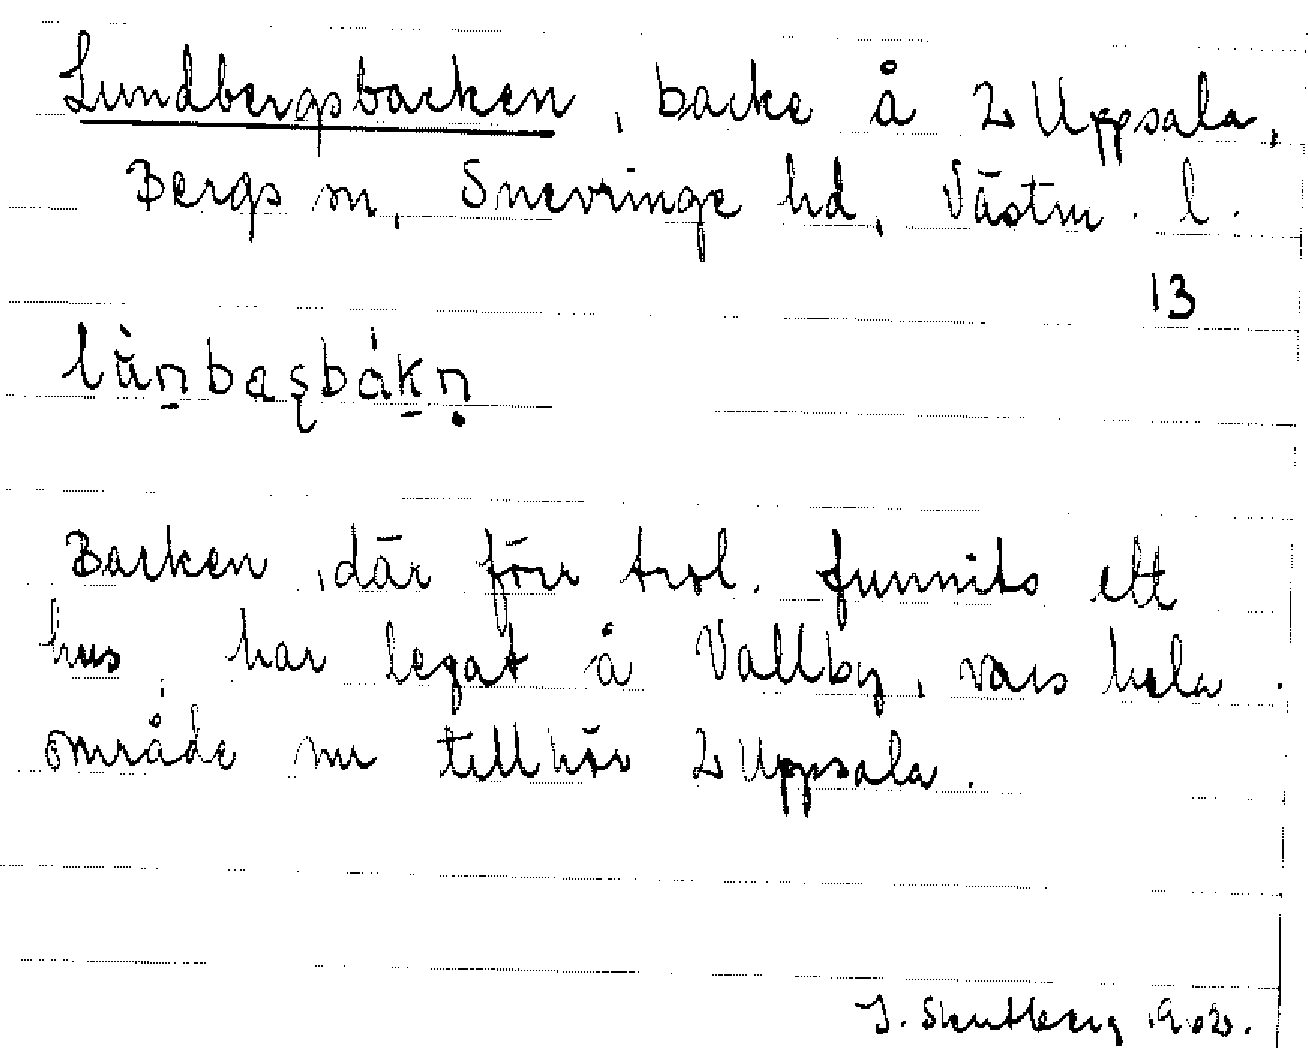 Lundbergsbacken, backe å 2 Uppsala,
Bergs sn, Snevringe hd, Västm. l.
13
lùn̲bæşbák̲ṇ
Backen, där förr trol. funnits ett
hus, har legat å Vallby, vars hela
område nu tillhör 2 Uppsala.